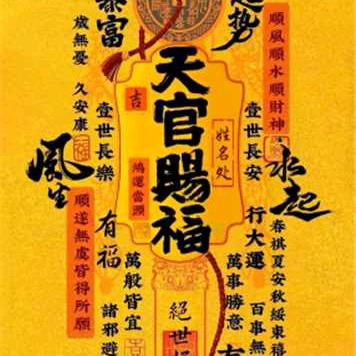 暴富
歲無憂 久安康
天官賜福
吉
姓名处
鴻運當頭
順風順水順財神
壹世長樂
壹世長安
風生
水起
順遂無虞皆得所願
有福
行大運
萬般皆宜
諸邪避
萬事勝意
百事無
春祺夏安秋綏東禧
絕世